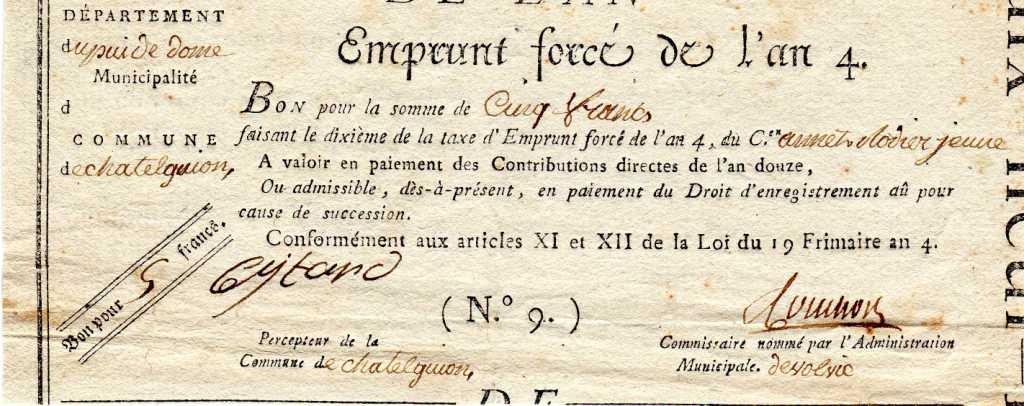 DE L'AN
DÉPARTEMENT
du puide dome
Municipalité
d
COMMUNE
de chatelguion,
Emprunt forcé de l'an 4.
BON pour la somme de Cinq francs
faisant le dixième de la taxe d'Emprunt forcé de l'an 4, du C.en annet jeune
A valoir en paiement des Contributions directes de l'an douze,
Ou admissible, dès-à-présent, en paiement du Droit d'enregistrement aû pour
cause de succession.
Conformément aux articles XI et XII de la Loi du 19 Frimaire an 4.
Bon pour 5 francs.
(N.º 9.)
Percepteur de la
Commune de chatelguion,
Commissaire nommé par l'Administration
Municipale. de volvic
DE